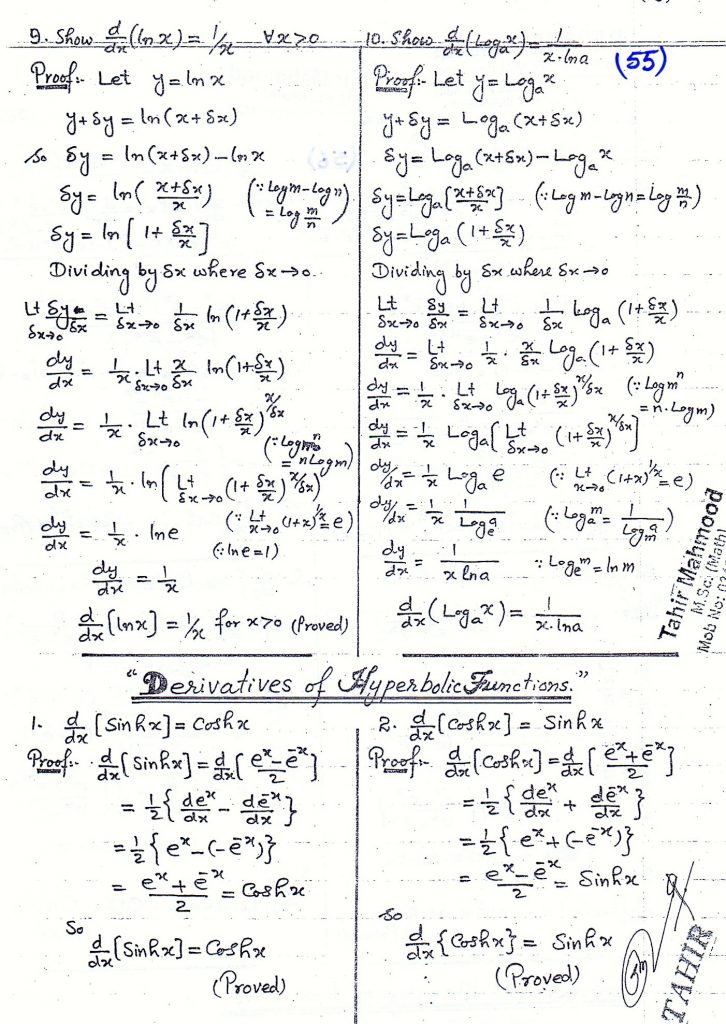 9. Show d/dx (ln x) = 1/x ∀x>0
Proof:- Let y = ln x
y+δy = ln(x+δx)
So δy = ln(x+δx) - ln x
δy = ln( (x+δx)/x ) (∵ Log m - Log n = Log m/n)
δy = ln[ 1 + δx/x ]
Dividing by δx where δx→0
Lt δx→0 δy/δx = Lt δx→0 1/δx ln(1+δx/x)
dy/dx = 1/x · Lt δx→0 x/δx ln(1+δx/x)
dy/dx = 1/x · Lt δx→0 ln(1+δx/x)^(x/δx)
(∵ Log m^n = n Log m)
dy/dx = 1/x · ln( Lt δx→0 (1+δx/x)^(x/δx) )
dy/dx = 1/x · ln e (∵ Lt x→0 (1+x)^(1/x) = e)
(∵ ln e = 1)
dy/dx = 1/x
d/dx [ln x] = 1/x for x>0 (Proved)
10. Show d/dx (Log_a x) = 1/(x·ln a)
(55)
Proof:- Let y = Log_a x
y+δy = Log_a (x+δx)
δy = Log_a (x+δx) - Log_a x
δy = Log_a [ (x+δx)/x ] (∵ Log m - Log n = Log m/n)
δy = Log_a (1 + δx/x)
Dividing by δx where δx→0
Lt δx→0 δy/δx = Lt δx→0 1/δx Log_a (1+δx/x)
dy/dx = Lt δx→0 1/x · x/δx Log_a (1+δx/x)
dy/dx = 1/x · Lt δx→0 Log_a (1+δx/x)^(x/δx) (∵ Log m^n = n·Log m)
dy/dx = 1/x Log_a [ Lt δx→0 (1+δx/x)^(x/δx) ]
dy/dx = 1/x Log_a e (∵ Lt x→0 (1+x)^(1/x) = e)
dy/dx = 1/x 1/(Log_e a) (∵ Log_a m = 1/(Log_m a))
dy/dx = 1/(x ln a) ∵ Log_e m = ln m
d/dx (Log_a x) = 1/(x·ln a)
Tahir Mahmood
M.Sc. (Math)
Mob No:
"Derivatives of Hyperbolic Functions."
1. d/dx [Sinh x] = Cosh x
Proof:- d/dx [Sinh x] = d/dx [ (e^x - e^-x)/2 ]
= 1/2 { de^x/dx - de^-x/dx }
= 1/2 { e^x - (-e^-x) }
= (e^x + e^-x)/2 = Cosh x
So
d/dx [Sinh x] = Cosh x
(Proved)
2. d/dx [Cosh x] = Sinh x
Proof:- d/dx [Cosh x] = d/dx [ (e^x + e^-x)/2 ]
= 1/2 { de^x/dx + de^-x/dx }
= 1/2 { e^x + (-e^-x) }
= (e^x - e^-x)/2 = Sinh x
So
d/dx {Cosh x} = Sinh x
(Proved)
TAHIR